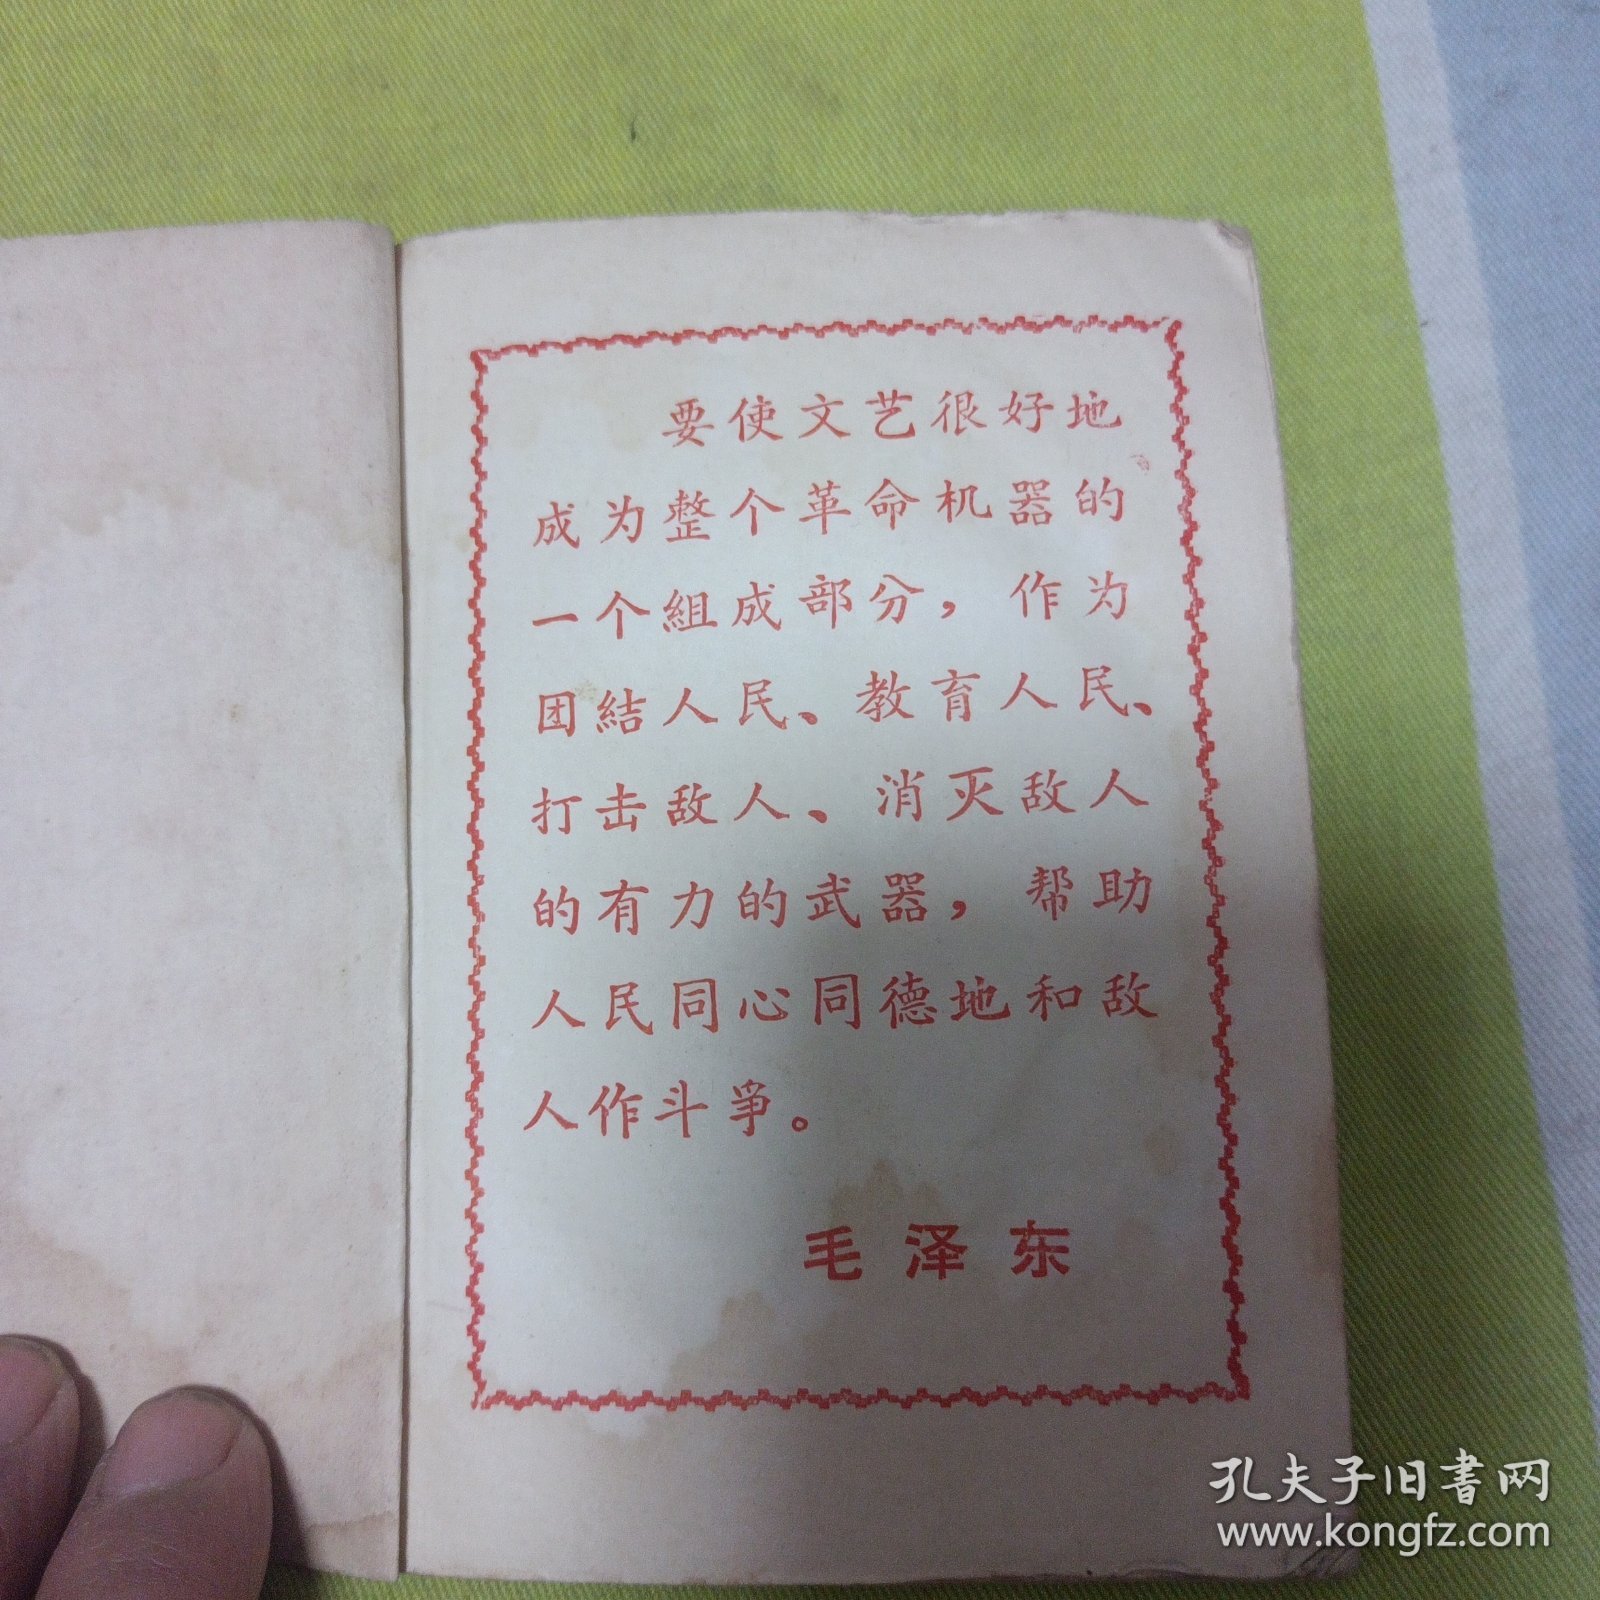 要使文艺很好地
成为整个革命机器的
一个組成部分，作为
团結人民、教育人民、
打击敌人、消灭敌人
的有力的武器，帮助
人民同心同德地和敌
人作斗爭。
毛泽东
孔夫子旧書网
www.kongfz.com